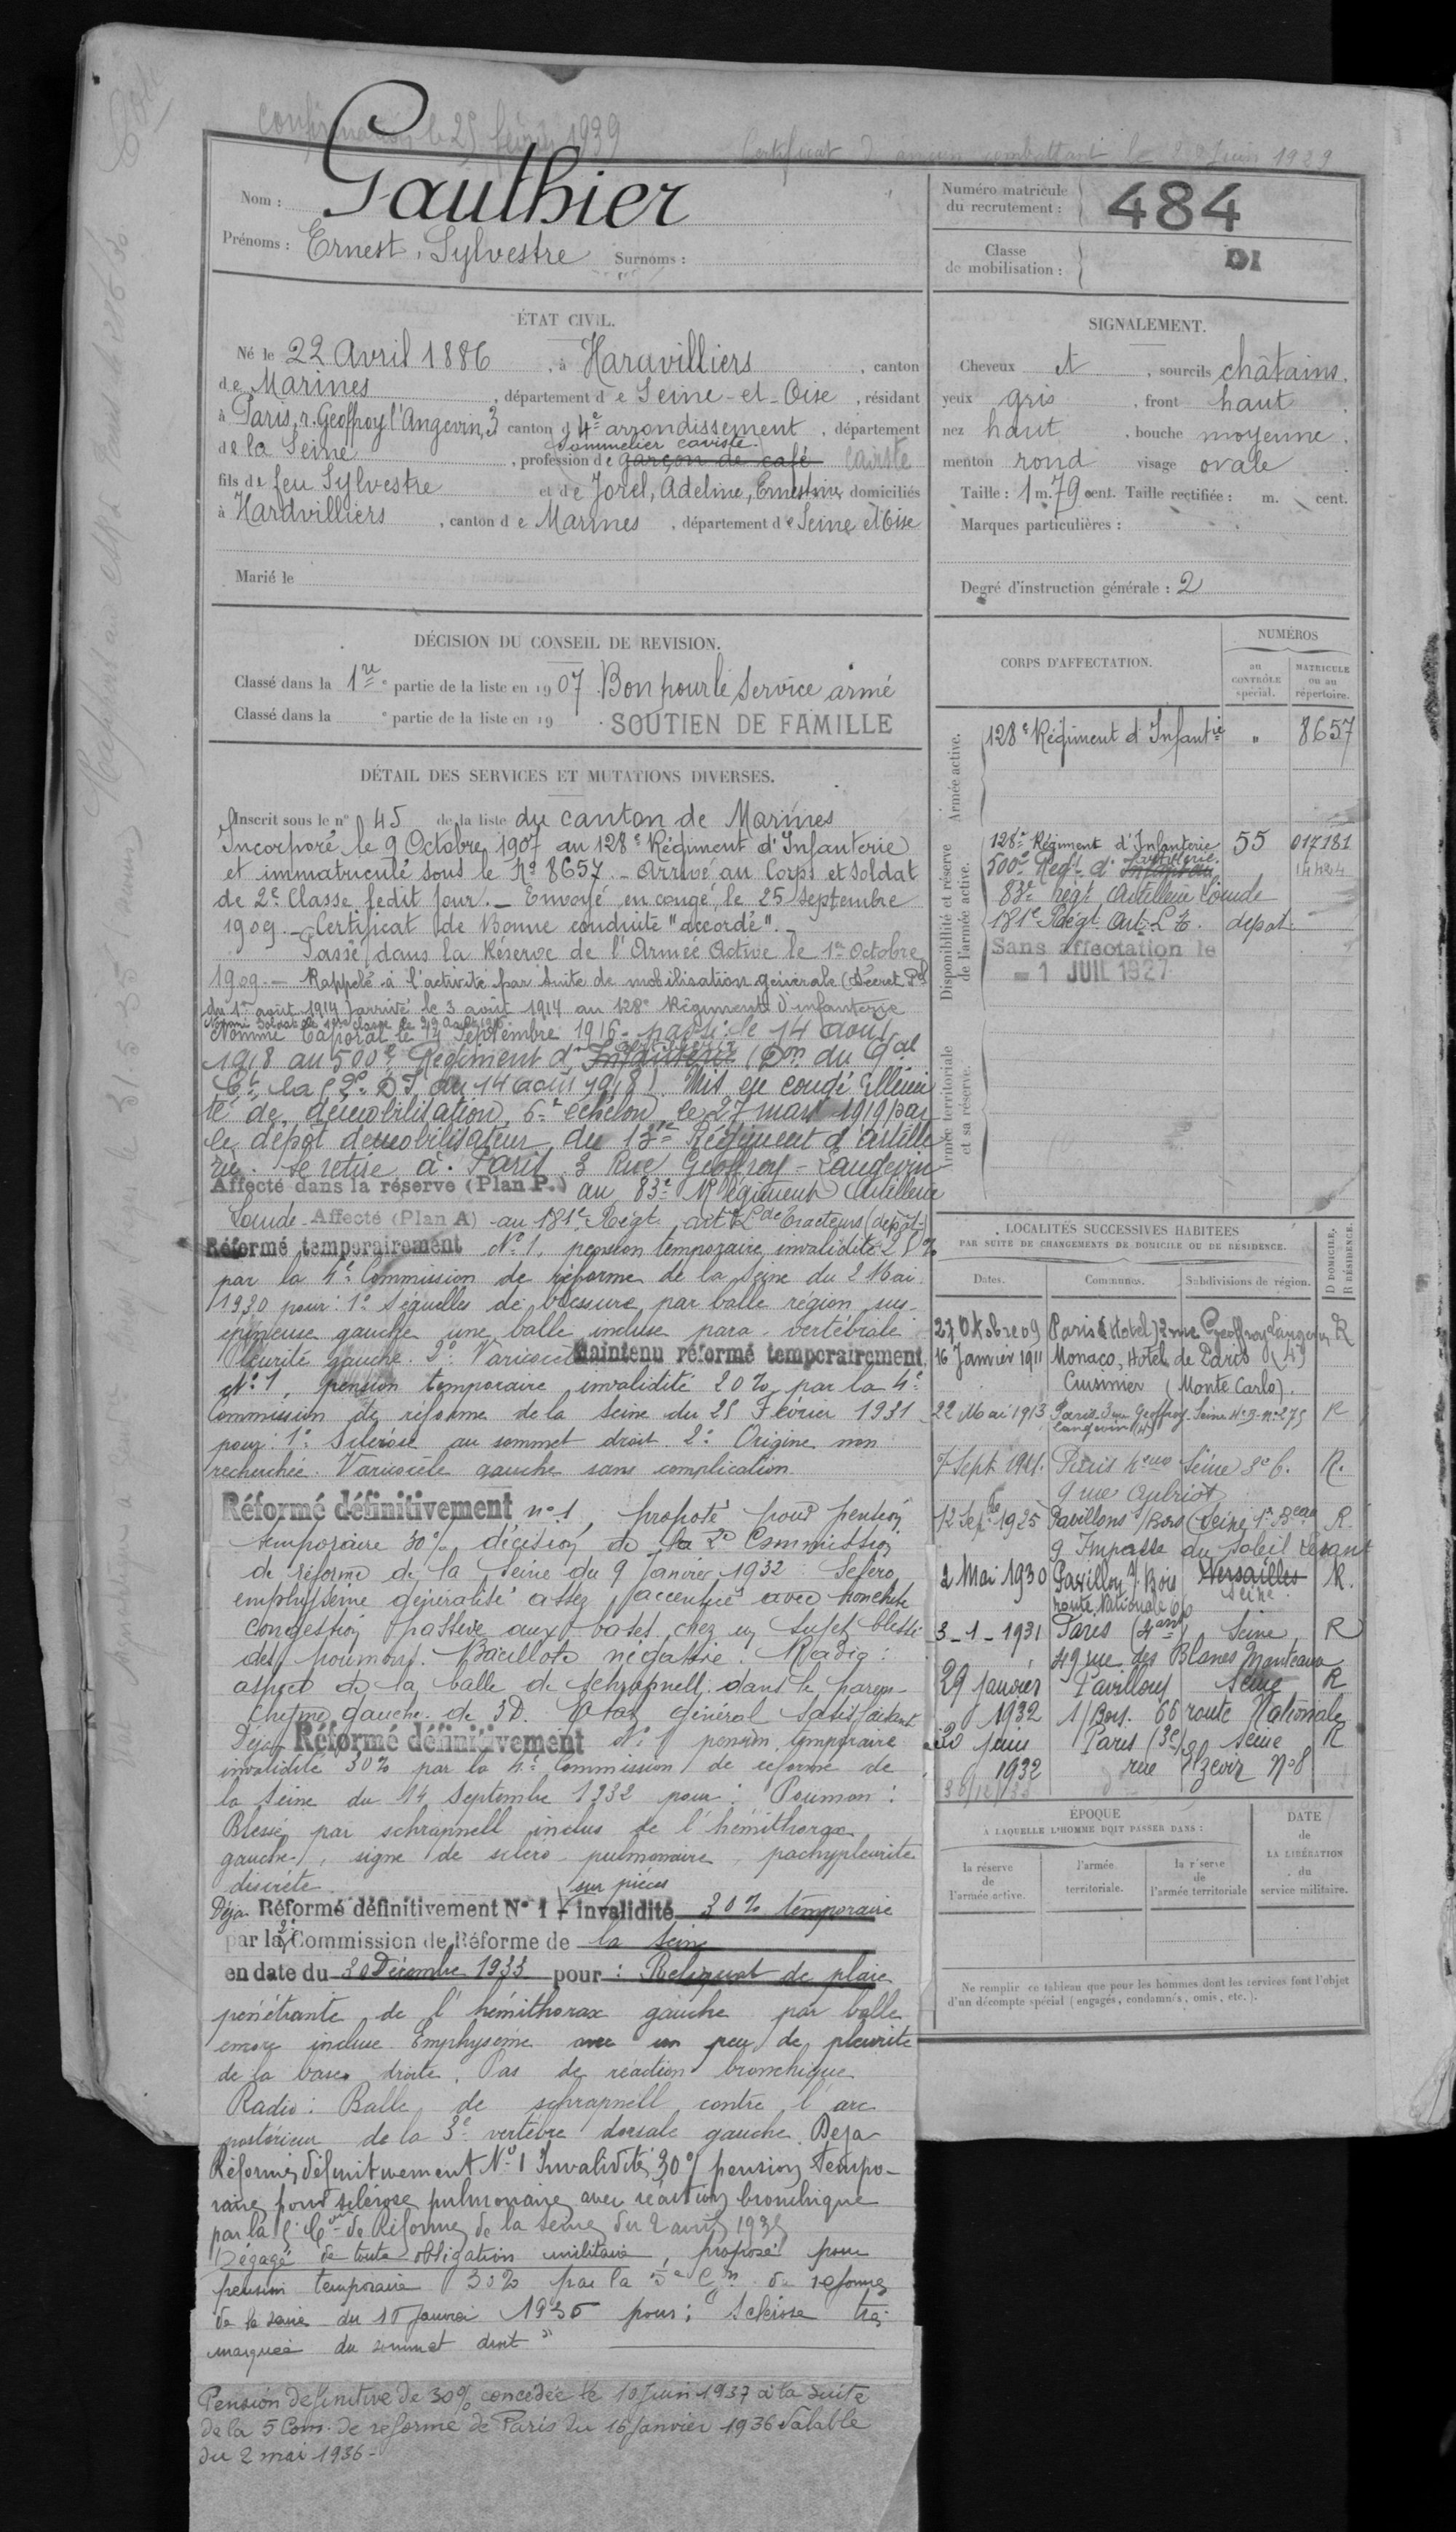 Confirmation le 25 février 1939
Certificat d'ancien combattant le Juin 1929
Nom : Gauthier
Prénoms : Ernest, Sylvestre Surnoms :
Numéro matricule du recrutement : 484
Classe de mobilisation :
DI
ÉTAT CIVIL.
Né le 22 Avril 1886, à Haravilliers, canton
de Marines, département de Seine-et-Oise, résidant
à Paris, r. Geoffroy l'Angevin, 3 canton d 4e arrondissement, département
Sommelier caviste
de la Seine, profession de garçon de café caviste
fils de feu Sylvestre et de Jorel, Adeline, Ernestine, domiciliés
à Haravilliers, canton de Marines, département de Seine et Oise
Marié le
SIGNALEMENT.
Cheveux et, sourcils châtains.
yeux gris, front haut
nez haut, bouche moyenne.
menton rond visage ovale
Taille : 1 m. 79 cent. Taille rectifiée : m. cent.
Marques particulières :
Degré d'instruction générale : 2
DÉCISION DU CONSEIL DE REVISION.
Classé dans la 1re partie de la liste en 1907. Bon pour le service armé
Classé dans la e partie de la liste en 19 . SOUTIEN DE FAMILLE
DÉTAIL DES SERVICES ET MUTATIONS DIVERSES.
Inscrit sous le n° 45 de la liste du canton de Marines
Incorporé le 9 Octobre 1907 au 128e Régiment d'Infanterie
et immatriculé sous le No 8657. - Arrivé au Corps et soldat
de 2e Classe ledit jour. - Envoyé en congé, le 25 Septembre
1909. - Certificat de Bonne conduite "accordé". -
Passé dans la Réserve de l'Armée Active le 1er Octobre
1909. - Rappelé à l'activité par suite de mobilisation générale (Décret Pel
du 1er août 1914) arrivé le 3 août 1914 au 128e Régiment d'infanterie
Nommé Soldat de 1ère classe le 29 Août 1916
Nommé Caporal le 4 Septembre 1916 - passé le 14 août
artillerie
1918 au 500e Régiment d'Infanterie (Don du Gal
Ct la 2e DI du 14 août 1918). Mis en congé illimi
té de démobilisation, 6e échelon, le 27 mars 1919 par
le dépôt démobilisateur du 13e Régiment d'artille
rie. Se retire à Paris 3 Rue Geoffroy-Langevin
Affecté dans la réserve (Plan P.) au 83e Régiment Artillerie
Lourde. Affecté (Plan A) au 181e Régt art L de tracteurs (dépôt)
Réformé temporairement No 1, pension temporaire invalidité 25%
par la 4e Commission de réforme de la Seine du 2 Mai
1930 pour : 1o Séquelles de blessure par balle région sus-
épineuse gauche une balle incluse para-vertébrale
Pleurite gauche. 2o Varicocèle Maintenu réformé temporairement
No 1, pension temporaire invalidité 20% par la 4e
Commission de réforme de la Seine du 25 Février 1931
pour : 1o Sclérose au sommet droit 2o Origine non
recherchée. Varicocèle gauche sans complication.
Réformé définitivement no 1, proposé pour pension
temporaire 30% décision de la 2e Commission
de réforme de la Seine du 9 Janvier 1932 : Scléro
emphysème généralisé assez accentué avec bronchite
congestion passive aux bases chez un sujet blessé
des poumons. Bacillose négative. Radio :
aspect de la balle de schrapnell dans le paren-
chyme gauche de 3D. Etat général satisfaisant
Déjà Réformé définitivement No 1 pension temporaire
invalidité 30% par la 4e Commission de réforme de
la Seine du 14 Septembre 1932 pour : Poumon :
Blessé par schrapnell inclus de l'hémithorax
gauche, signe de scléro-pulmonaire, pachypleurite
discrète.
sur pièces
Déjà Réformé définitivement No 1 - invalidité 30% temporaire
par la 2e Commission de Réforme de la Seine
en date du 30 Décembre 1933 pour : Reliquat de plaie
pénétrante de l'hémithorax gauche par balle
encore incluse. Emphysème avec un peu de pleurite
de la base droite. Pas de réaction bronchique
Radio : Balle de schrapnell contre l'arc
postérieur de la 3e vertèbre dorsale gauche. Déjà
Réformé définitivement No 1 Invalidité 30% pension tempo-
raire pour sclérose pulmonaire avec réaction bronchique
par la Con de Réforme de la Seine du 2 avril 1935
Dégagé de toute obligation militaire, proposé pour
pension temporaire 30% par la 5e Cn de réforme
de la Seine du 16 Janvier 1936 pour : "Sclérose très
marquée du sommet droit"
Pension définitive de 30% concédée le 10 Juin 1937 à la suite
de la 5 Com. de réforme de Paris du 16 Janvier 1936 Valable
du 2 mai 1936 -
CORPS D'AFFECTATION.
NUMÉROS
au CONTRÔLE spécial.
MATRICULE ou au répertoire.
Armée active.
128e Régiment d'Infantie " 8657
Disponibilité et réserve de l'armée active.
128e Régiment d'Infanterie 55 017181
500e Regt d'Infanterie artillerie 14424
83e Régt Artillerie Lourde
181e Régt Art. L. dépot
Sans affectation le
- 1 JUIL 1927
Armée territoriale et sa réserve.
LOCALITÉS SUCCESSIVES HABITÉES
PAR SUITE DE CHANGEMENTS DE DOMICILE OU DE RÉSIDENCE.
Dates. Communes. Subdivisions de région. D DOMICILE, R RÉSIDENCE.
27 Octobre 09 Paris (Hotel) 3 rue Geoffroy Langevin R
16 Janvier 1911 Monaco, Hotel de Paris (4)
Cuisinier (Monte Carlo).
22 Mai 1913 Paris 3 rue Geoffroy Seine 4e B. No 275 R
Langevin (4e)
7 Sept 1921. Paris 4eme Seine 3e B. R.
9 rue Aubriot
12 Sepbre 1925 Pavillons s/Bois (Seine 1er Beau R.
9 Impasse du Soleil Levant
2 Mai 1930 Pavillon s. Bois Versailles Seine R.
route Nationale 66
3-1-1931 Paris (4arr) Seine R
49 rue des Blancs Manteaux
29 janvier Pavillons Seine R
1932 s/Bois. 66 route Nationale
20 juin Paris (3e) Seine R
1932 rue Elzévir No 8
30/12/33
ÉPOQUE
À LAQUELLE L'HOMME DOIT PASSER DANS :
la réserve de l'armée active.
l'armée territoriale.
la réserve de l'armée territoriale
DATE de LA LIBÉRATION du service militaire.
Ne remplir ce tableau que pour les hommes dont les services font l'objet
d'un décompte spécial (engagés, condamnés, omis, etc.).